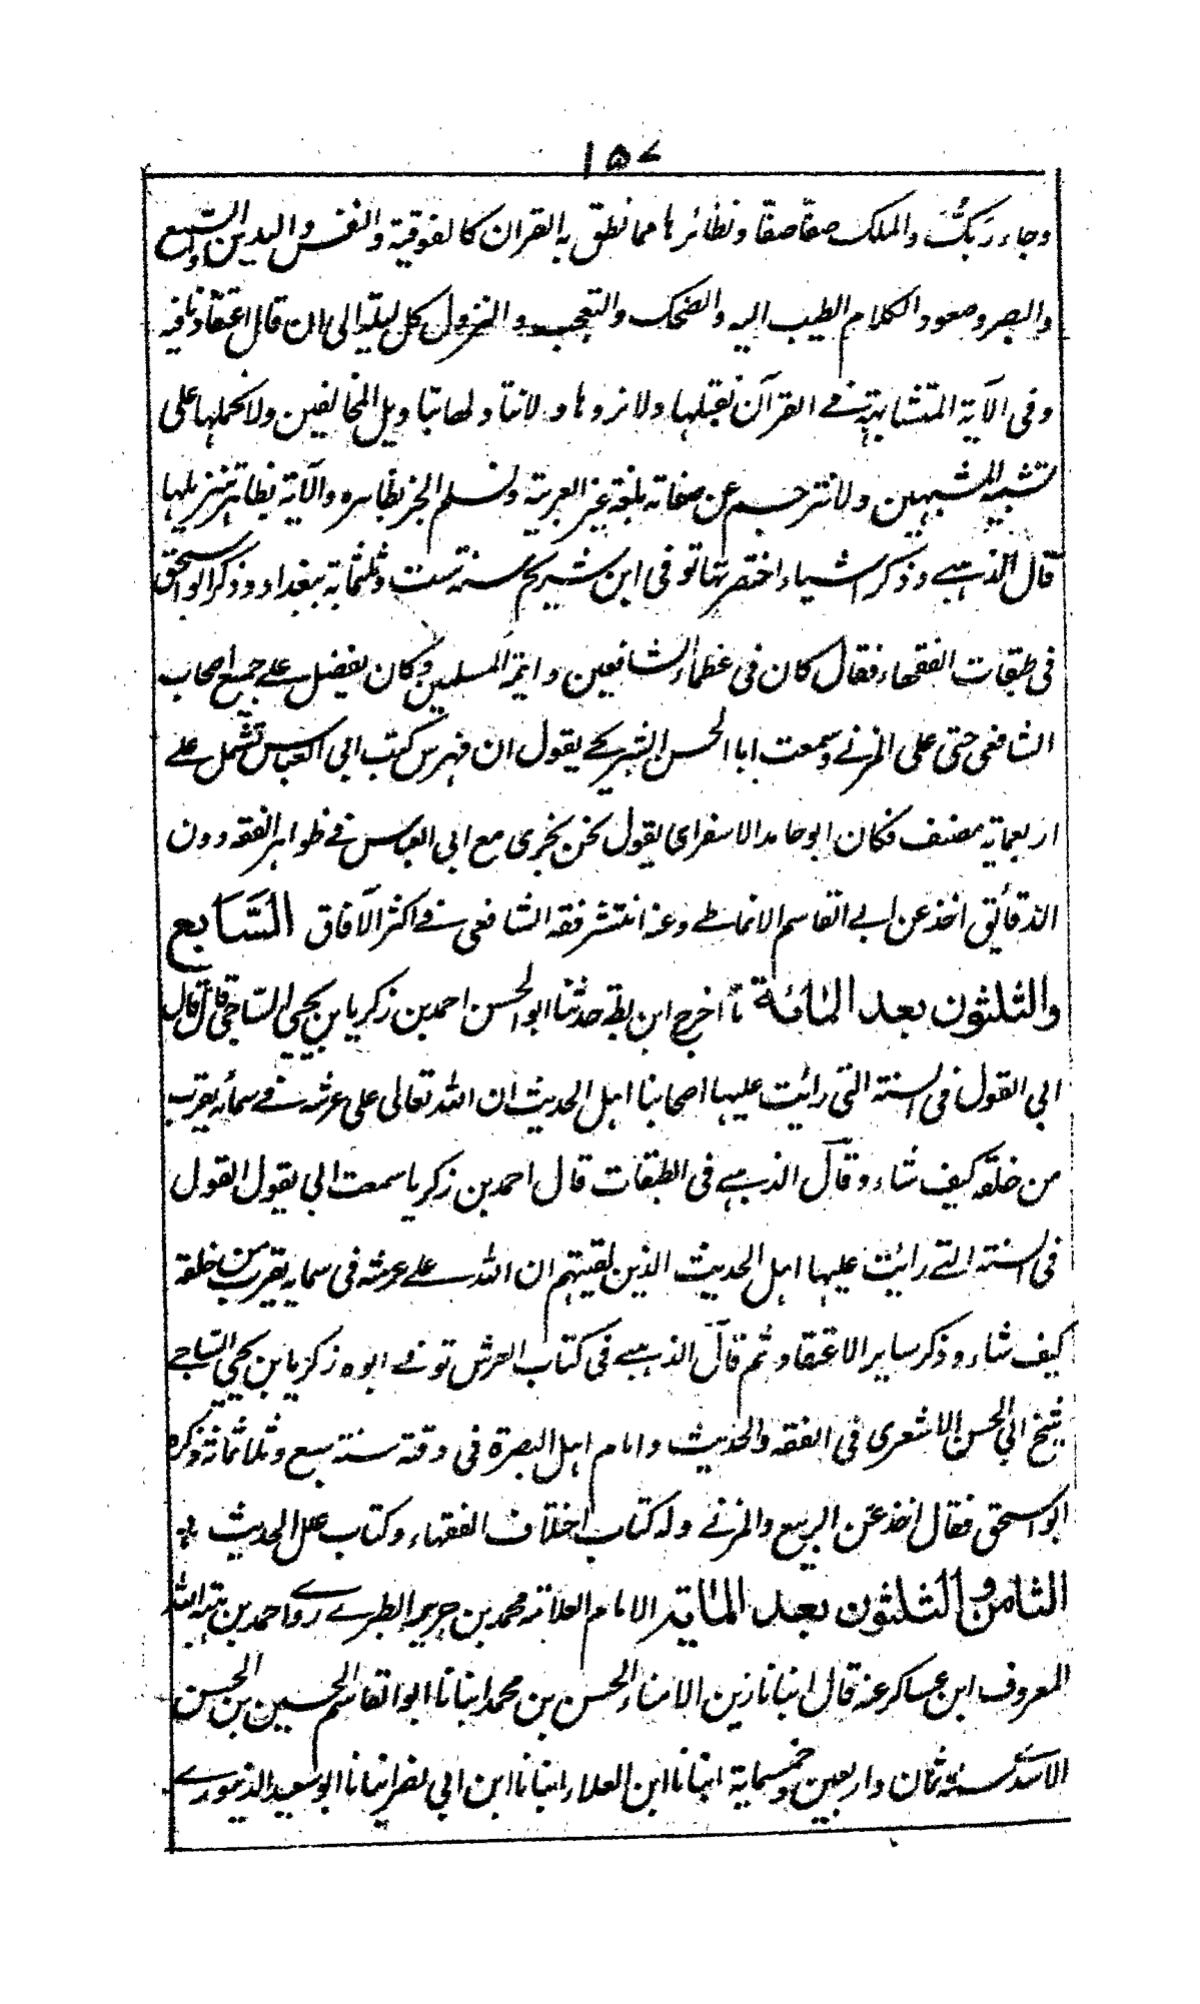 ١٥٧
وجاء ربك والملك صفا صفا ونظائرها مما نطق به القران كالفوقية والنفس واليدين والسمع
والبصر وصعود الكلام الطيب اليه والضحك والتعجب والنزول كل ليلة الى ان قال اعتقادنا فيه
وفى الآية المتشابهة فے القرآن نقبلها ولا نردها ولا نتاولها بتاويل المخالفين ولا نحملها على
تشبيه المشبهين ولا نترجم عن صفاته بلغة غير العربية ونسلم الخبر بظاهره والآية بظاهر تنزيلها
قال الذهبے وذكر اشياء اختصرتها توفى ابن شريح سنة ست وثلثماية ببغداد وذكر ابو اسحق
فى طبقات الفقهاء فقال كان فى عظماء الشافعين وايمة المسلمين وكان يفضل علے جميع اصحاب
الشافعى حتى على المزنے وسمعت ابا الحسن الشيرجے يقول ان فهرس كتب ابى العباس تشمل علے
اربعماية مصنف فكان ابو حامد الاسفراى يقول نحن نجرى مع ابى العباس فے ظواهر الفقه دون
الدقائق اخذ عن ابے القاسم الانماطے وعنه انتشر فقه الشافعى فے اكثر الآفاق السابع
والثلثون بعد المائة ما اخرج ابن بطة حدثنا ابو الحسن احمد بن زكريا بن يحيى الساجى قال قال
ابى القول فى السنة التى رائت عليها اصحابنا اهل الحديث ان الله تعالى على عرشه فے سمائه يقرب
من خلقه كيف شاء وقال الذهبے فى الطبقات قال احمد بن زكريا سمعت ابى يقول القول
فى السنة التے رائت عليها اهل الحديث الذين لقيتهم ان الله علے عرشه فى سمايه يقرب من خلقه
كيف شاء وذكر ساير الاعتقاد ثم قال الذهبے فى كتاب العرش توفے ابوه زكريا بن يحيى الساجے
شيخ ابي الحسن الاشعرى فى الفقه والحديث وامام اهل البصرة فى وقته سنة سبع وثلاثمائة وذكره
ابو اسحق فقال اخذ عن الربيع والمزنے وله كتاب اختلاف الفقهاء وكتاب علل الحديث
الثامن والثلثون بعد الماية الامام العلامة محمد بن جرير الطبرے روى احمد بن هبة الله
المعروف ابن عساكر عنه قال انبانا زين الامناء الحسن بن محمد انبانا ابو القاسم الحسين بن الحسن
الاسدے سنة ثمان واربعين وخمسماية انبانا ابن العلاء انبانا ابن ابى نصر انبانا ابو سعيد الدينورے